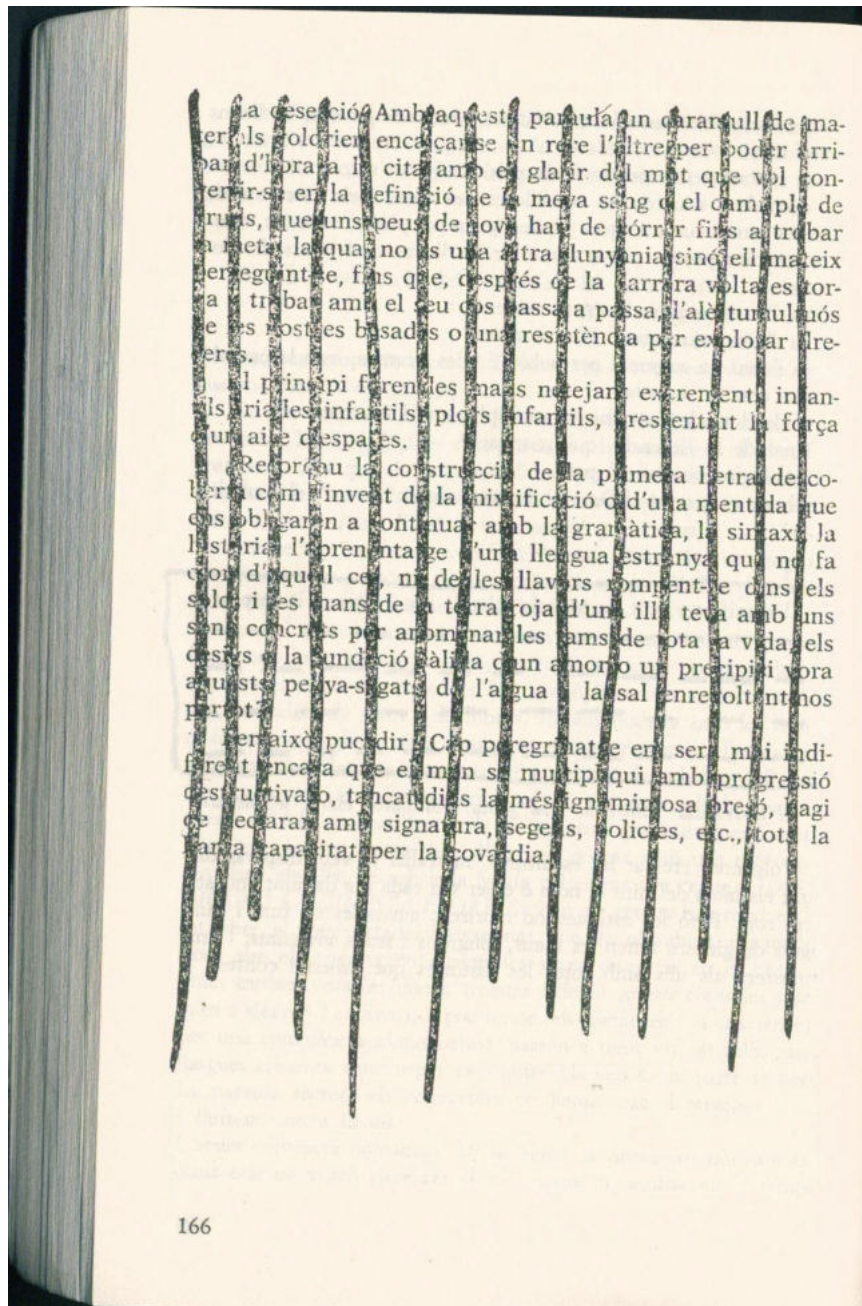 La deserció. Amb aquesta paraula un caramull de ma-
terials voldrien encalçar-se un rere l'altre per poder arri-
bar d'hora a la cita amb el glatir del mot que vol con-
vertir-se en la definició de la meva sang o el camí ple de
truns, que uns peus de jove han de córrer fins a trobar
la meta, la qual no és una altra llunyania sinó ell mateix
perseguint-se, fins que, després de la darrera volta es tor-
na a trobar amb el seu cos passa a passa, l'alè tumultuós
de les nostres besades o una resistència per explotar dre-
cera.
Al principi foren les mans netejant excrements infan-
tils, rialles infantils, plors infantils, pressentint la força
d'un aire d'espases.
Recordau la construcció de la primera lletra desco-
berta com l'invent de la mixtificació o d'una mentida que
ens obligaren a continuar amb la gramàtica, la sintaxi, la
història, l'aprenentatge d'una llengua estranya que no fa
olor d'aquell cel, ni de les llavors rompent-se dins els
solcs i les mans de la terra roja d'una illa teva amb uns
sons concrets per anomenar les fams de tota la vida, els
desigs o la fundació càlida d'un amor o un precipici vora
aquests penya-segats de l'aigua i la sal enrevoltant-nos
pertot?
Per això puc dir: Cap peregrinatge em serà mai indi-
ferent encara que el món se multipliqui amb progressió
destructiva o, tancat dins la més ignominiosa presó, hagi
de declarar amb signatura, segells, policies, etc., tota la
capacitat per la covardia.
166